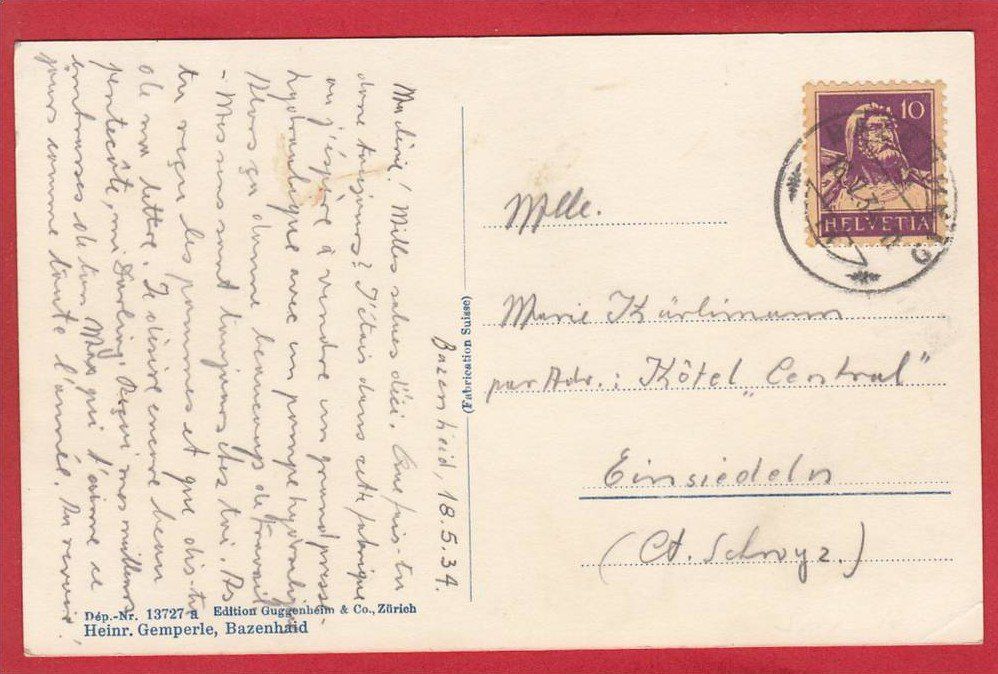 Bazenheid, 18.5.34.
Ma chère! Milles salues d'ici. Que fais-tu
donc toujours? J'étais dans cette fabrique
ou j'éspère à vendre un grand presse
hydraulique avec un pompe hydraulique
Alors ça donne beaucoup de travail
- Mes sens sont toujours chez toi. As
tu reçu les pommes et que dis-tu
de ma lettre. Je désire encore beau
pentecôte, mi Darling! Reçui mes meilleurs
embrasses de ton Max qui t'aime ce
jours comme toute l'année. Au revoir!
(Fabrication Suisse)
Dép.-Nr. 13727 a Edition Guggenheim & Co., Zürich
Heinr. Gemperle, Bazenhaid
10
HELVETIA
Mlle.
Marie Kürlimann
par Adr.: Hôtel „Central"
Einsiedeln
(Ct. Schwyz.)